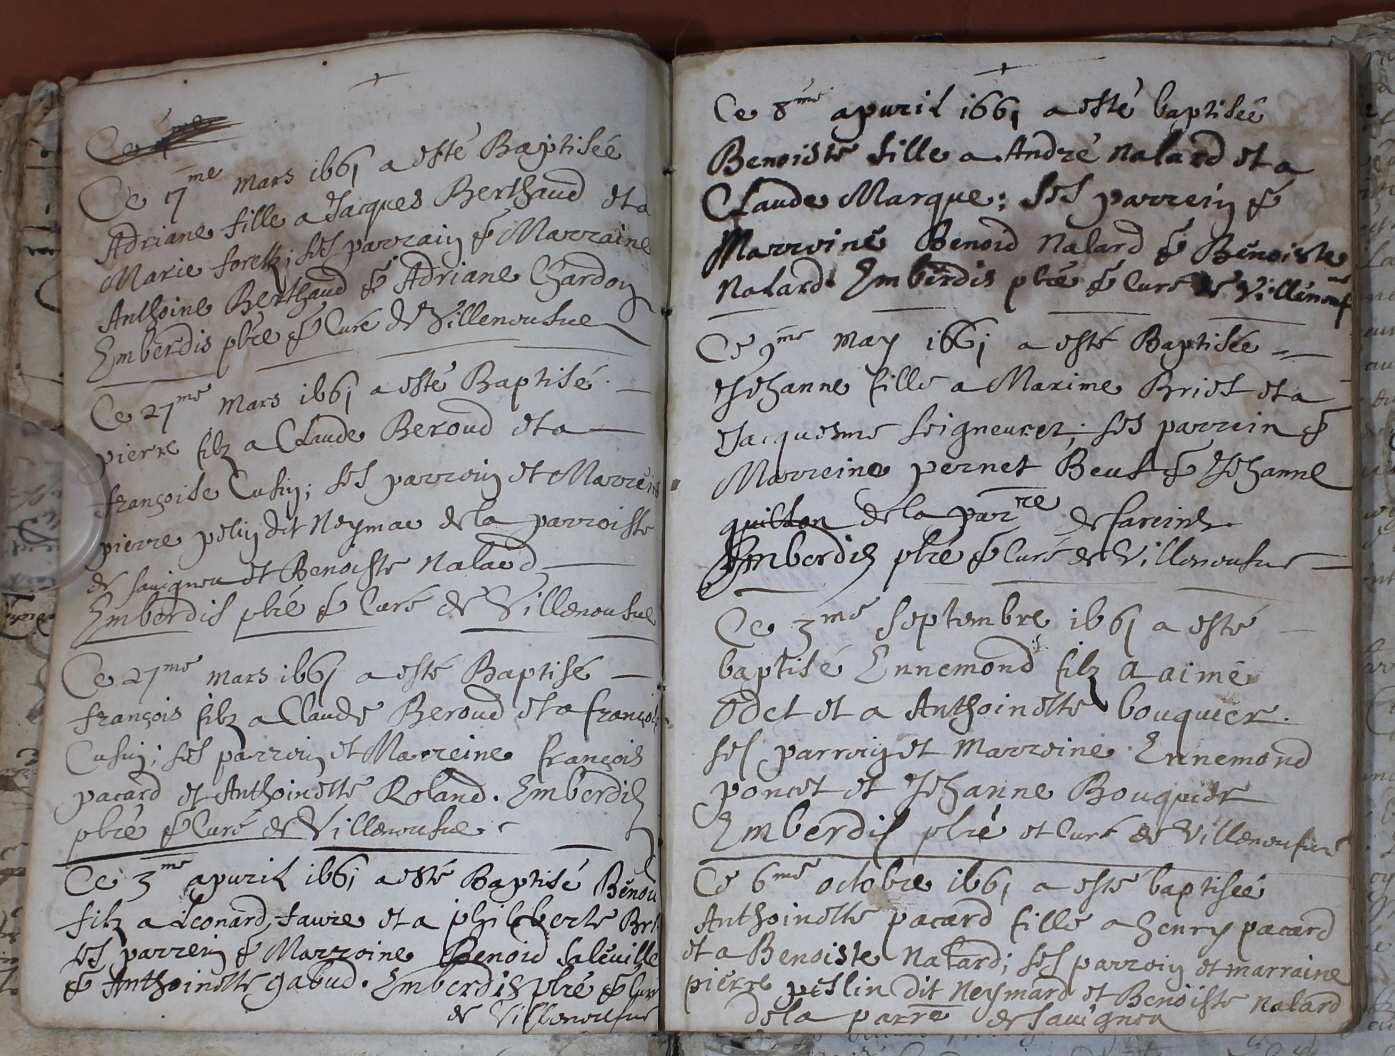 Ce
Ce 17me mars 1661 a esté Baptisée
Adriane fille a Jacques Berthaud et a
Marie foretz; ses parrain & Marraine
Anthoine Berthaud & Adriane Chardon
Emberdis pbre & Curé de Villenousue
Ce 27me mars 1661 a esté Baptisé
pierre filz a Claude Beroud et a
françoise Cusin; ses parroin et Marrein
pierre pelin dit Neymar de la parroisse
de sauigneu et Benoiste Nalard
Emberdis pbre & Curé de Villenousue
Ce 27me mars 1661 a esté Baptisé
françois filz a Claude Beroud et a françoi
Cusin; ses parroin et Marreine françois
pacard et Anthoinette Roland. Emberdis
pbre & Curé de Villenousue
Ce 3me apuril 1661 a esté Baptisé Benoi
filz a Leonard faure et a philiberte
ses parrein & Marroine Benoid
& Anthoinette gabud. Emberdis pbré & Curé
de Villenousue
Ce 8me apuril 1661 a esté baptisée
Benoiste fille a André Nalard et a
Claude Marque; ses parrein &
Marroine Benoid Nalard & Benoiste
Nalard. Emberdis pbre & Curé de Villenousue
Ce 9me may 1661 a esté Baptisée
Jehanne fille a Maxime Briet et a
Jacquesme seigneuret; ses parrein &
Marreine pernet & Jehanne
quillon de la parre de fareins
Emberdis pbre & Curé de Villenousue
Ce 3me septembre 1661 a esté
baptisé Ennemond filz a aimé
Odet et a Anthoinette bouquier.
ses parroin et marroine Ennemond
poncet et Jehanne Bouquier
Emberdis pbré et Curé de Villenousue
Ce 6me octobre 1661 a esté baptisée
Anthoinette pacard fille a henry pacard
et a Benoiste Nalard; ses parroin et marraine
pierre peslin dit Neymard et Benoiste Nalard
de la parre de Sauigneu